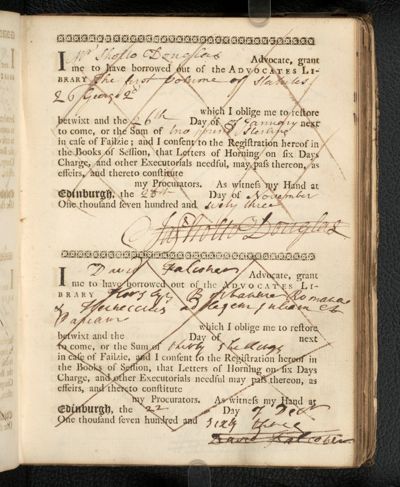 I Mr Sholto Douglas Advocate, grant
me to have borrowed out of the ADVOCATES LI-
BRARY The first volume of Statutes
26 George 2d
which I oblige me to restore
betwixt and the 26th Day of January next
to come, or the Sum of two pound Sterling
in case of Failzie; and I consent to the Registration hereof in
the Books of Session, that Letters of Horning on six Days
Charge, and other Executorials needful, may pass thereon, as
effeirs, and thereto constitute
my Procurators. As witness my Hand at
Edinburgh, the 26th Day of November
One thousand seven hundred and sixty three
Sholto Douglas
I David Falconer Advocate, grant
me to have borrowed out of the ADVOCATES LI-
BRARY Romana
& Heineccius ad legem Juliam et
Papiam
which I oblige me to restore
betwixt and the Day of next
to come, or the Sum of thirty shillings
in case of Failzie, and I consent to the Registration hereof in
the Books of Session, that Letters of Horning on six Days
Charge, and other Executorials needful may pass thereon, as
effeirs, and thereto constitute
my Procurators. As witness my Hand at
Edinburgh, the 22 Day of Decr
One thousand seven hundred and sixty three
David Falconer